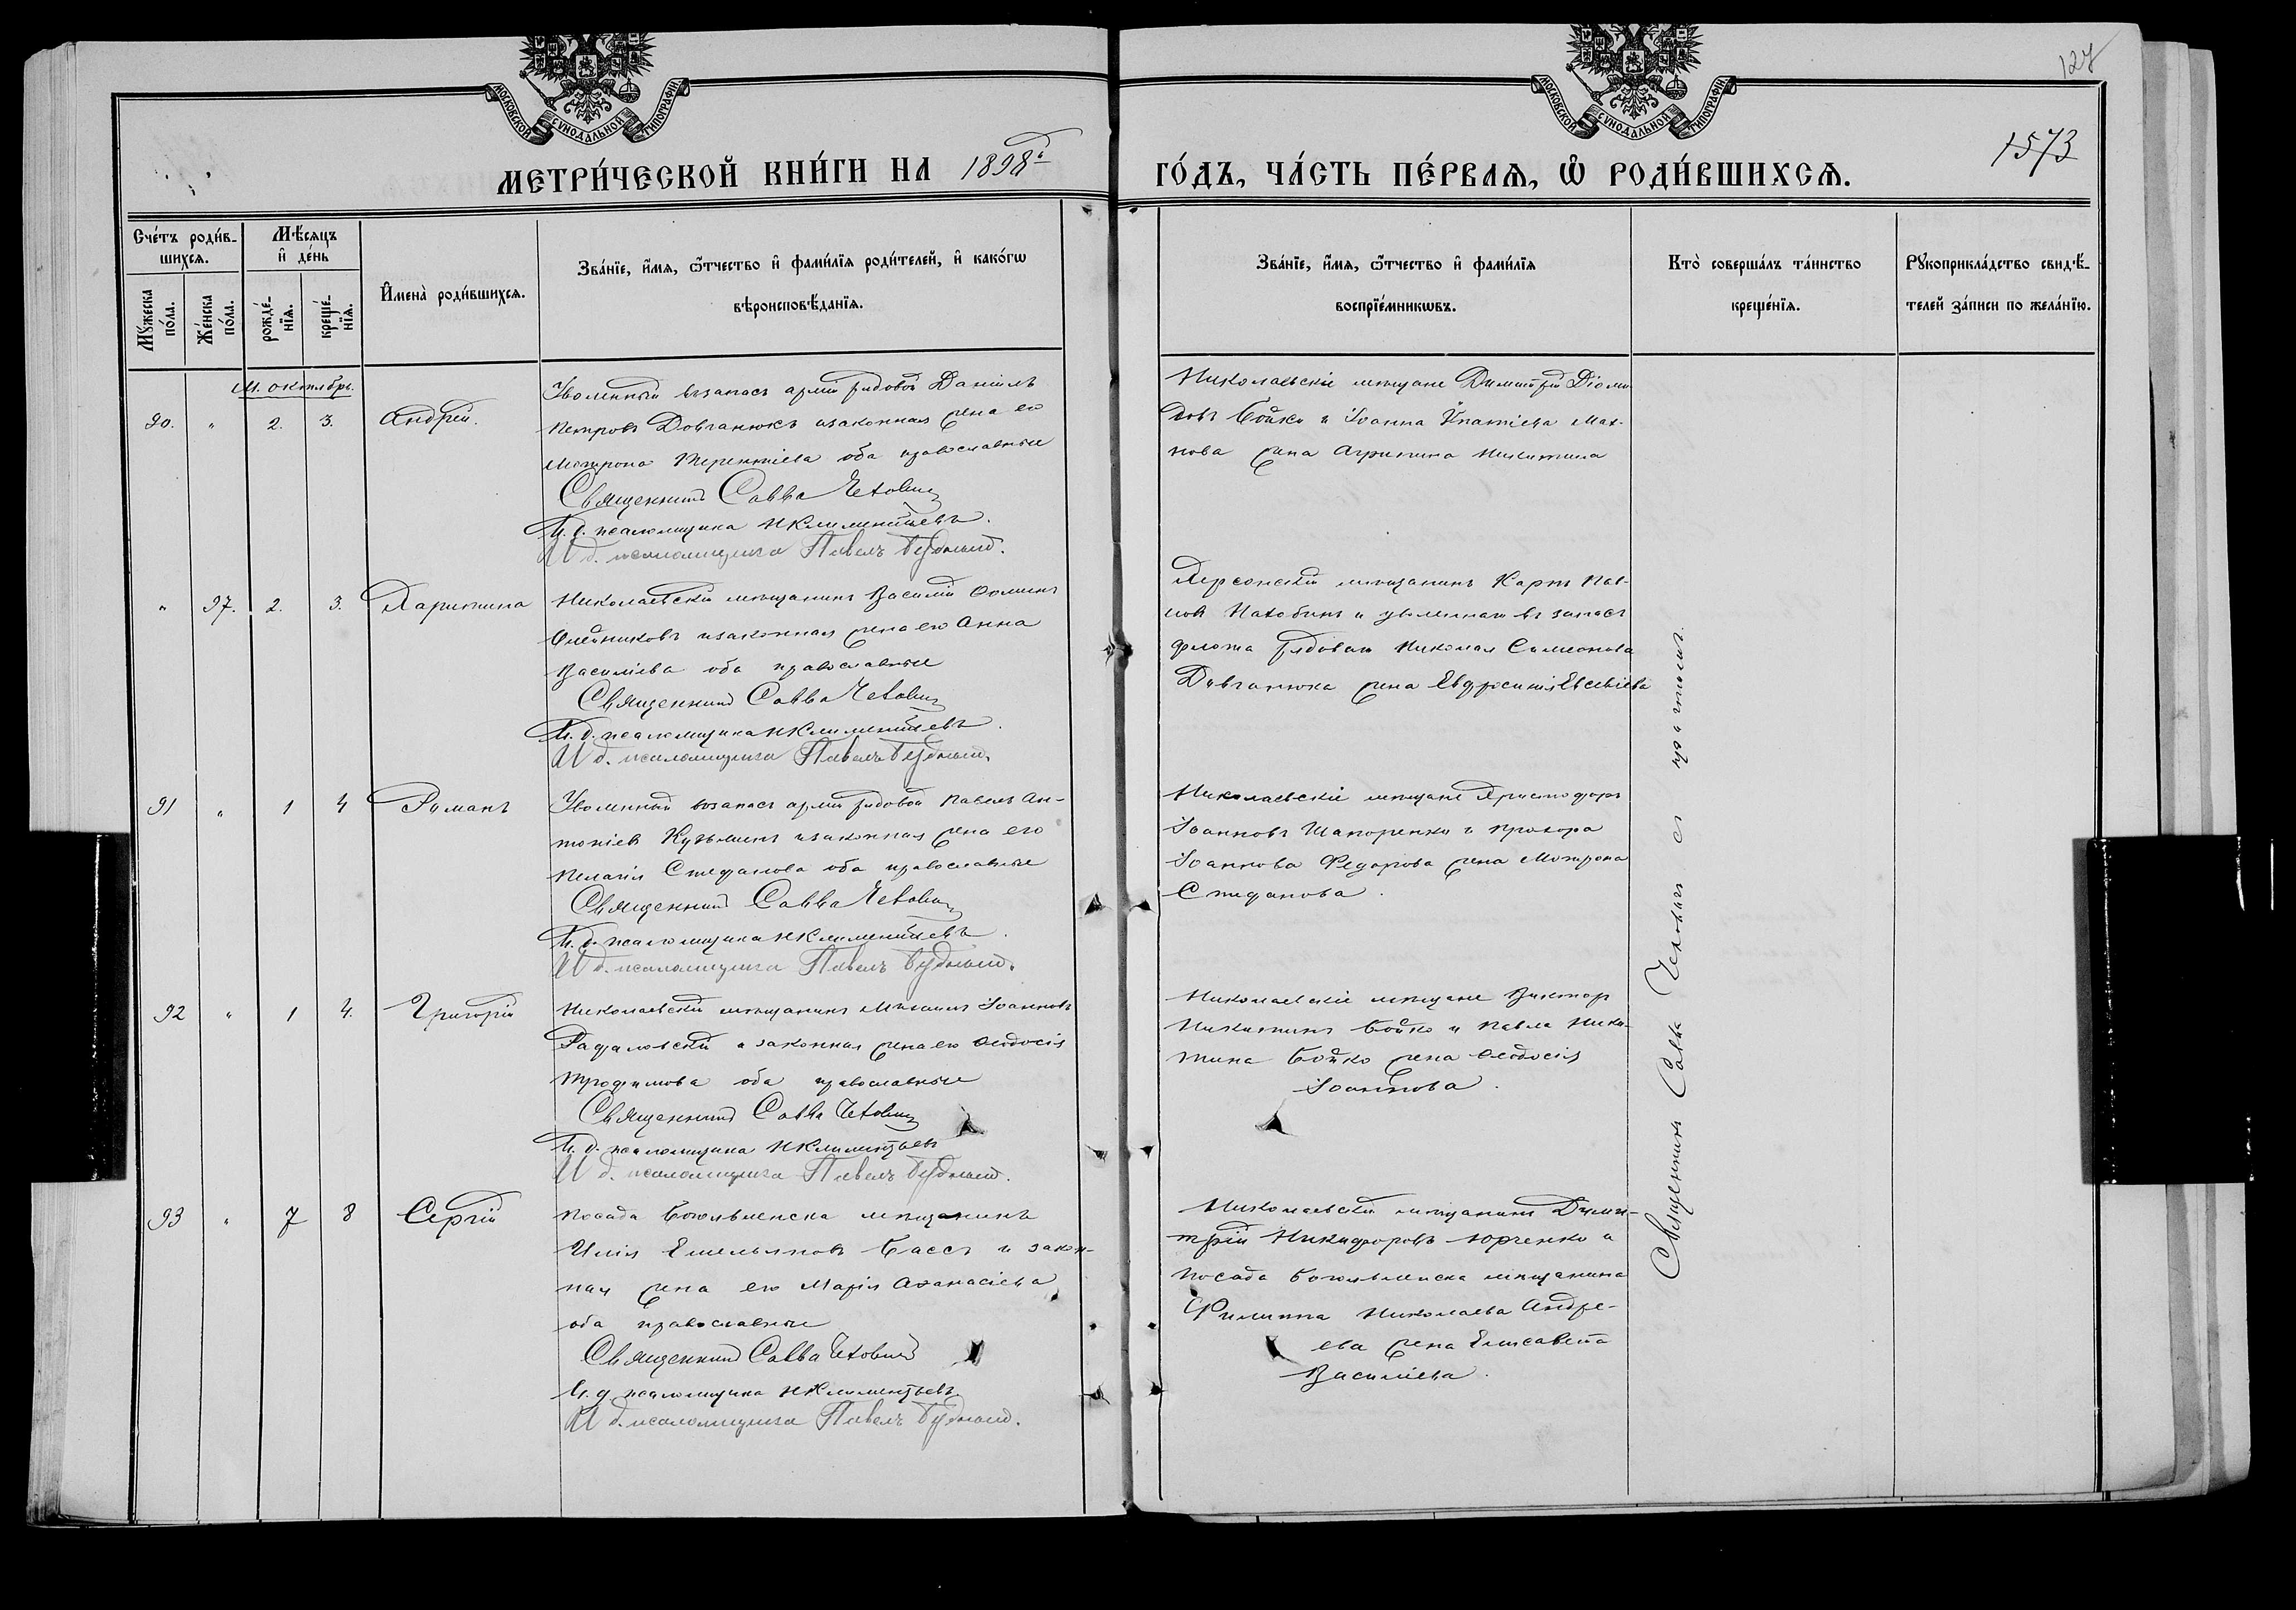 127
МОСКОВСКОЙ СѴНОДАЛЬНОЙ ТИПОГРАФІИ
МОСКОВСКОЙ СѴНОДАЛЬНОЙ ТИПОГРАФІИ
МЕТРИ́ЧЕСКОЙ КНИ́ГИ НА 1898й ГО́ДЪ, ЧА́СТЬ ПЕ́РВАѦ, Ѡ РОДИ́ВШИХСѦ.
1573
Сче́тъ роди́в-
шихсѧ.
Мѣ́сяцъ
и де́нь
Мꙋ́жеска
по́ла.
Же́нска
по́ла.
рожде́-
нїѧ.
креще́-
нїѧ.
Имена̀ роди́вшихсѧ.
Зва́нїе, и́мѧ, ѻ́тчество и фами́лїѧ роди́телей, и како́гѡ
вѣроисповѣ́данїѧ.
Зва́нїе, и́мѧ, ѻ́тчество и фами́лїѧ
воспрїе́мникѡвъ.
Кто̀ соверша́лъ та́инство
креще́нїѧ.
Рꙋкоприкла́дство свидѣ́-
телей за́писи по жела́нїю.
М. октябрь.
90. " 2. 3. Андрей.
Уволенный въ запасъ арміи рядовой Даніилъ
Петровъ Довганюкъ и законная жена его
Мотрона Терентіева оба православные
Священникъ Савва Чехович
И. д. псаломщика Н Климентьевъ.
И д. псаломщика Павелъ Будный.
Николаевскіе мещане Димитрій Діоми
довъ Бойко и Іоанна Игнатіева Мах-
нова жена Агрипина Никитина
" 97. 2. 3. Харитина
Николаевскій мещанинъ Василій Фоминъ
Олейниковъ и законная жена его Анна
Василіева оба православные
Священникъ Савва Чехович
И. д. псаломщика Н Климентьевъ.
И д. псаломщика Павелъ Будный.
Херсонскій мещанинъ Карпъ Пав-
ловъ Находкинъ и уволеннаго въ запасъ
флота рядоваго Николая Симеонова
Довганюка жена Евфросинія Евсевіева
91 " 1 4 Романъ
Уволенный въ запасъ арміи рядовой Павелъ Ан-
тоніевъ Кузьминъ и законная жена его
Пелагія Стефанова оба православные
Священникъ Савва Чехович
И. д. псаломщика Н Климентьевъ.
И д. псаломщика Павелъ Будный.
Николаевскіе мещане Христофоръ
Іоанновъ Шапоренко и Прохора
Іоаннова Федорова жена Мотрона
Стефанова.
92 " 1 4. Григорій
Николаевскій мещанинъ Михаилъ Іоанновъ
Рафаловскій и законная жена его Феодосія
Трофимова оба православные
Священникъ Савва Чехович
И. д. псаломщика Н Климентьевъ
И д. псаломщика Павелъ Будный.
Николаевскіе мещане Викторъ
Никитинъ Бойко и Павла Ники-
тина Бойко жена Феодосія
Іоаннова.
93 " 7 8 Сергій
Посада Богоявленска мещанинъ
Илія Емельяновъ Бассъ и закон-
ная жена его Марія Афанасіева
оба православные
Священникъ Савва Чехович
И. д псаломщика Н Климентьевъ
И д. псаломщика Павелъ Будный.
Николаевскій мещанинъ Дими-
трій Никифоровъ Юрченко и
посада Богоявленска мещанина
Филиппа Николаева Андре-
ева жена Елисавета
Василіева.
Священникъ Савва Чеховичъ съ причтомъ.